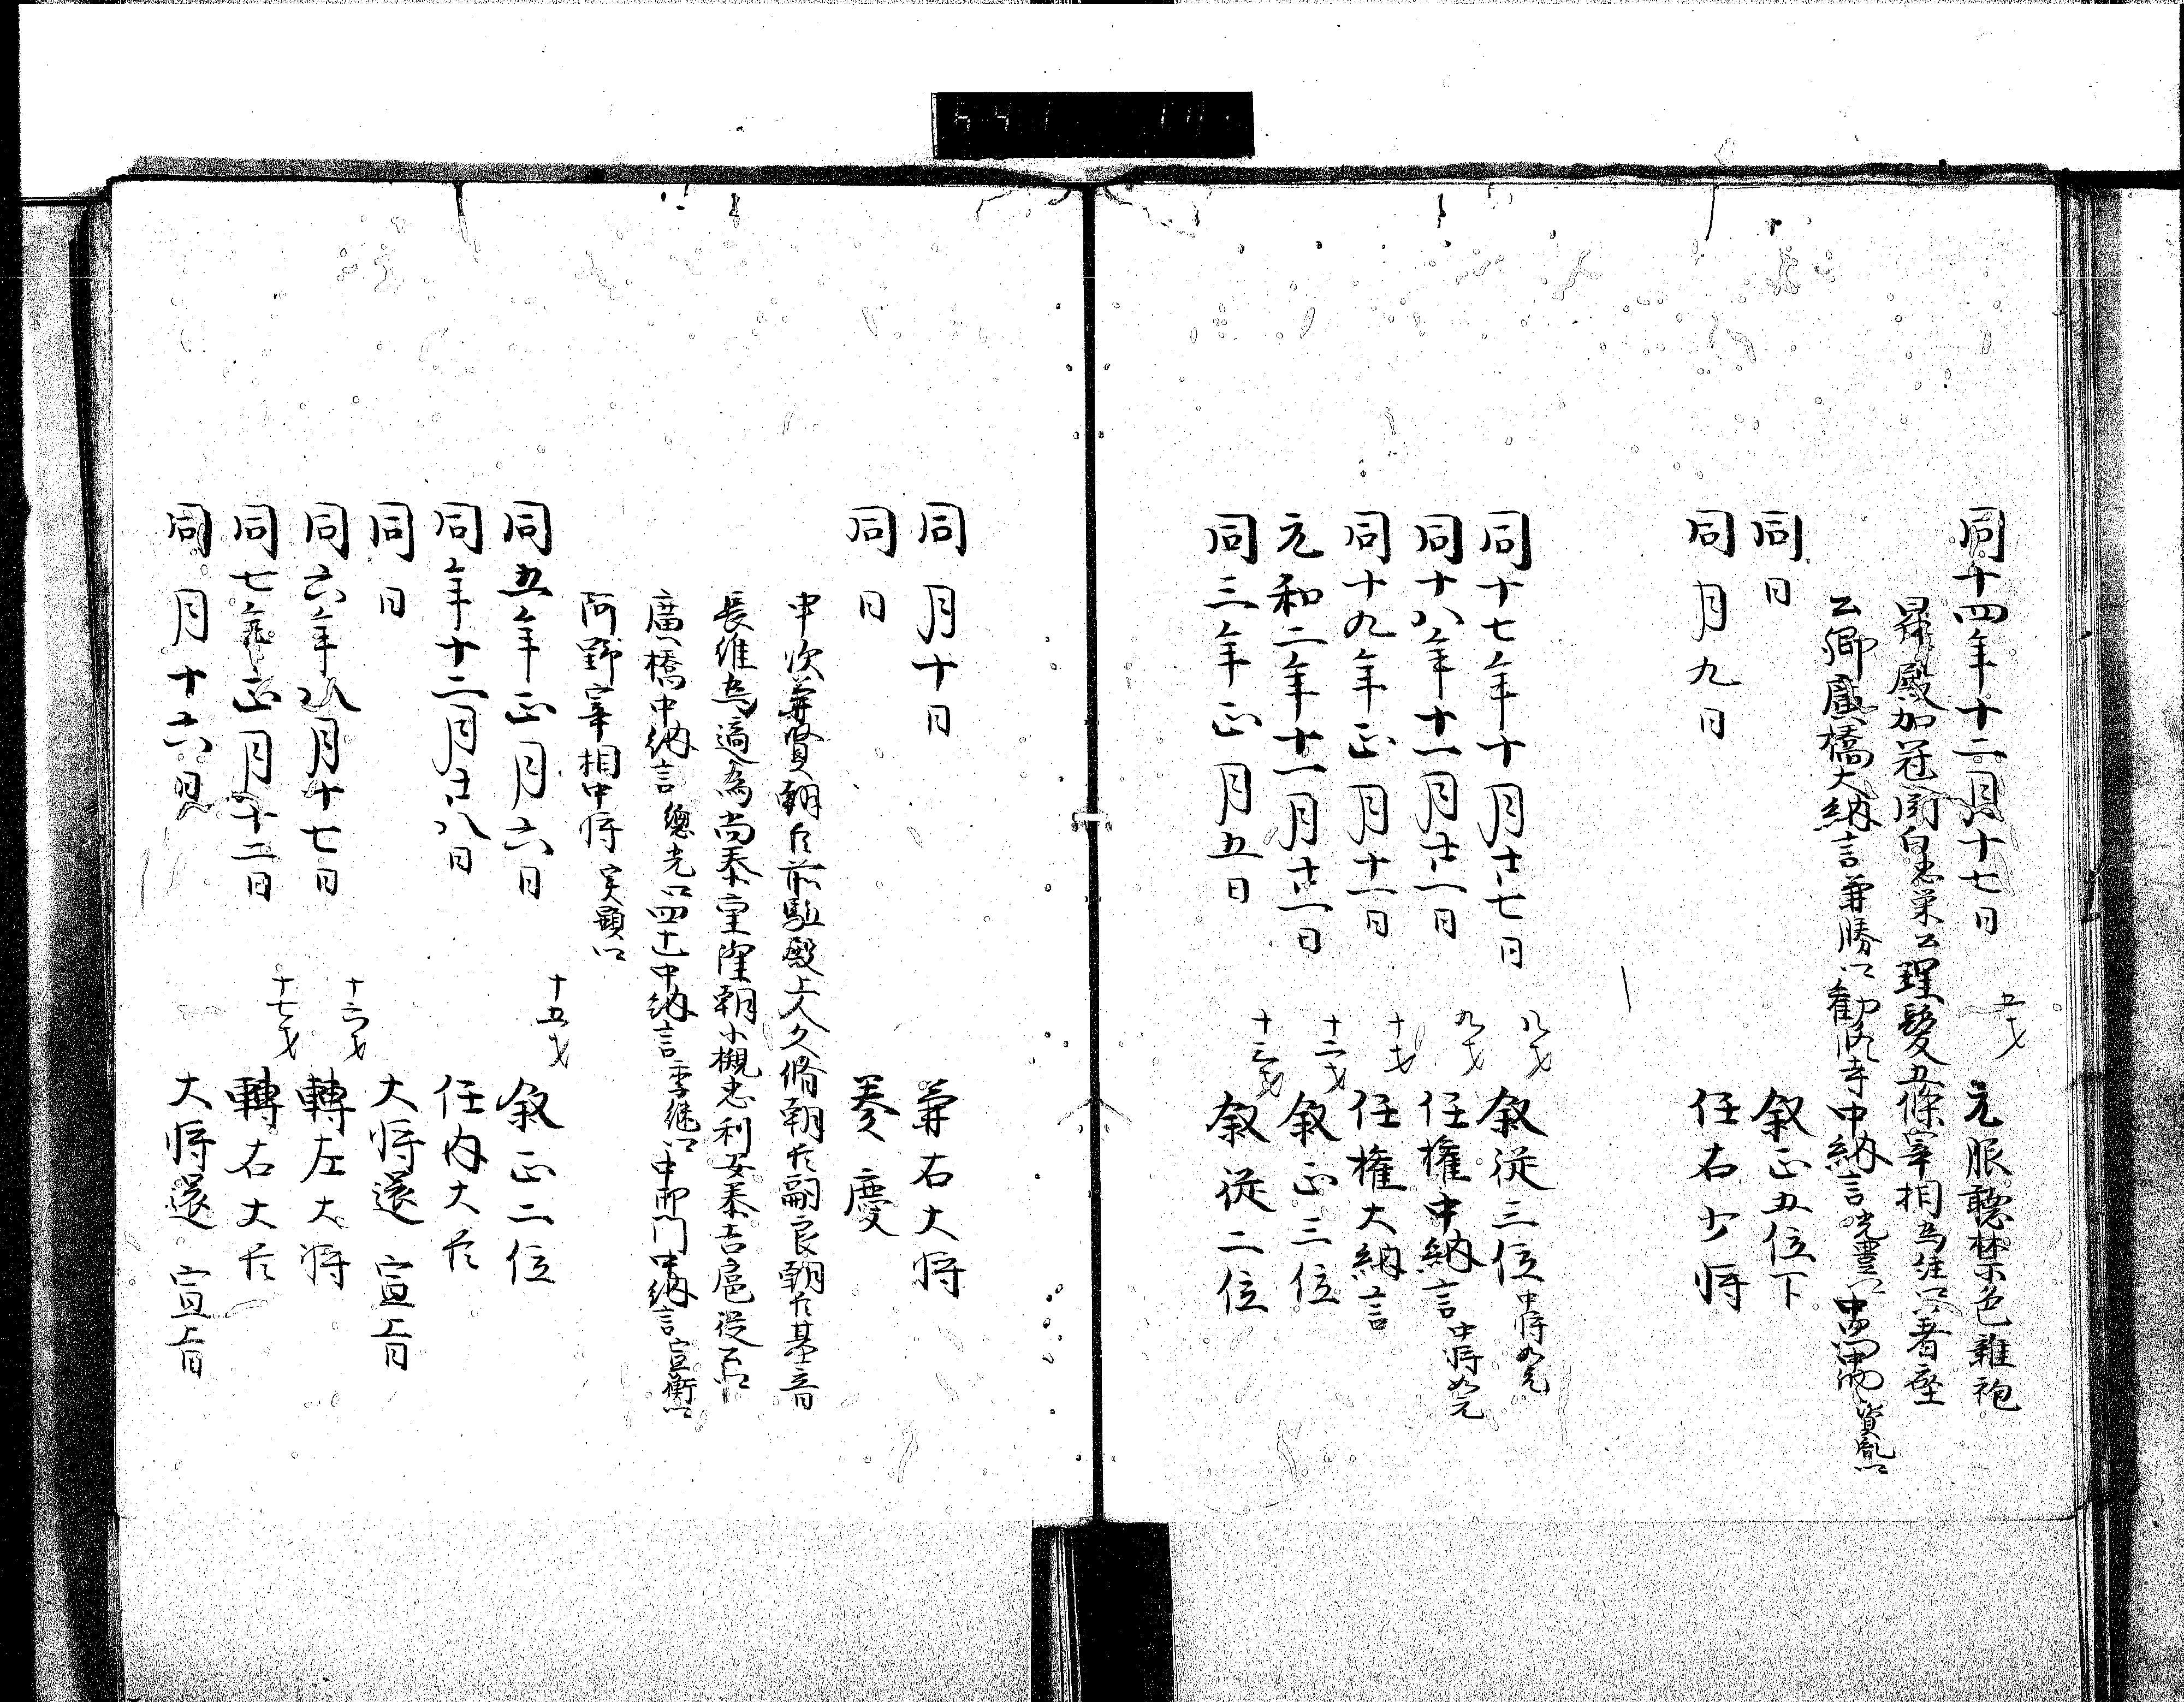 同十四年十二月十七日 五才 元服聴禁色雑袍
昇殿加冠関白忠栄公理髪五條宰相為経卿着座
公卿廣橋大納言兼勝卿勧修寺中納言光豊卿中納言資胤卿
同日 叙正五位下
同月九日 任右少将
同十七年十月廿七日 八才 叙従三位中将如元
同十八年十一月廿一日 九才 任権中納言中将如元
同十九年正月十一日 十才 任権大納言
元和二年十一月廿一日 十二才 叙正三位
同三年正月五日 十三才 叙従二位
同月十日 兼右大将
同日 奏慶
申次兼賢朝臣前駈殿上人久脩朝臣嗣良朝臣基音
長維為適為尚泰重隆朝小槻忠利安泰吉扈従
廣橋中納言総光卿四辻中納言季継卿中御門中納言宣衡卿
阿野宰相中将実顕卿
同五年正月六日 十五才 叙正二位
同年十二月廿八日 任内大臣
同日 大将還宣旨
同六年八月十七日 十六才 轉左大将
同七年正月十二日 十七才 轉右大臣
同月十六日 大将還宣旨